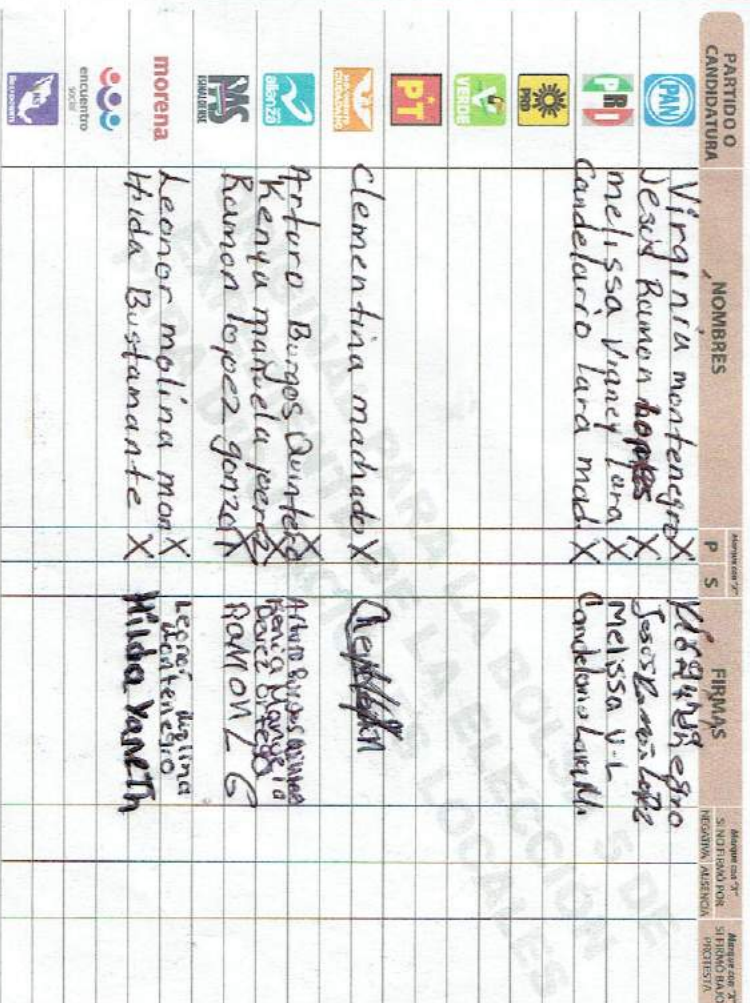 PARTIDO O CANDIDATURA
NOMBRES
Marque con "X"
P S
FIRMAS
Marque con "X" SI NO FIRMÓ POR
NEGATIVA AUSENCIA
Marque con "X" SI FIRMÓ BAJO PROTESTA
PAN
Virginia montenegro X
Jesus Ramon X Jesus Ramon Lopez
PRI
melissa Vianey Lara X Melissa V-L
Candelario Lara mad. X Candelario
PRD
VERDE
PT
MOVIMIENTO CIUDADANO
Clementina machado X
alianza
Arturo Burgos Quintero X Arturo Burgos
Kenya manuela perez X Kenia Manuela
PAS
Ramon lopez gonzal X RAMON L G
morena
Leonor molina mon X Leonor Molina
Montenegro
Hilda Bustamante X Hilda YaneTh
encuentro social
MAS
ORIGINAL PARA LA BOLSA DE
EXPEDIENTE DE LA ELECCIÓN
LOCALES